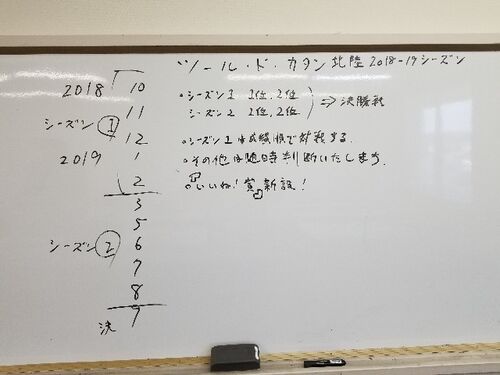 ツール・ド・カタン北陸 2018-19 シーズン
2018 10
11
シーズン① 12
2019 1
2
3
5
シーズン② 6
7
8
決 9
・シーズン1 1位,2位
シーズン2 1位,2位
⇒ 決勝戦
・シーズン1は成績順で対戦する。
・その他は随時判断いたします。
・いいね!賞 新設!